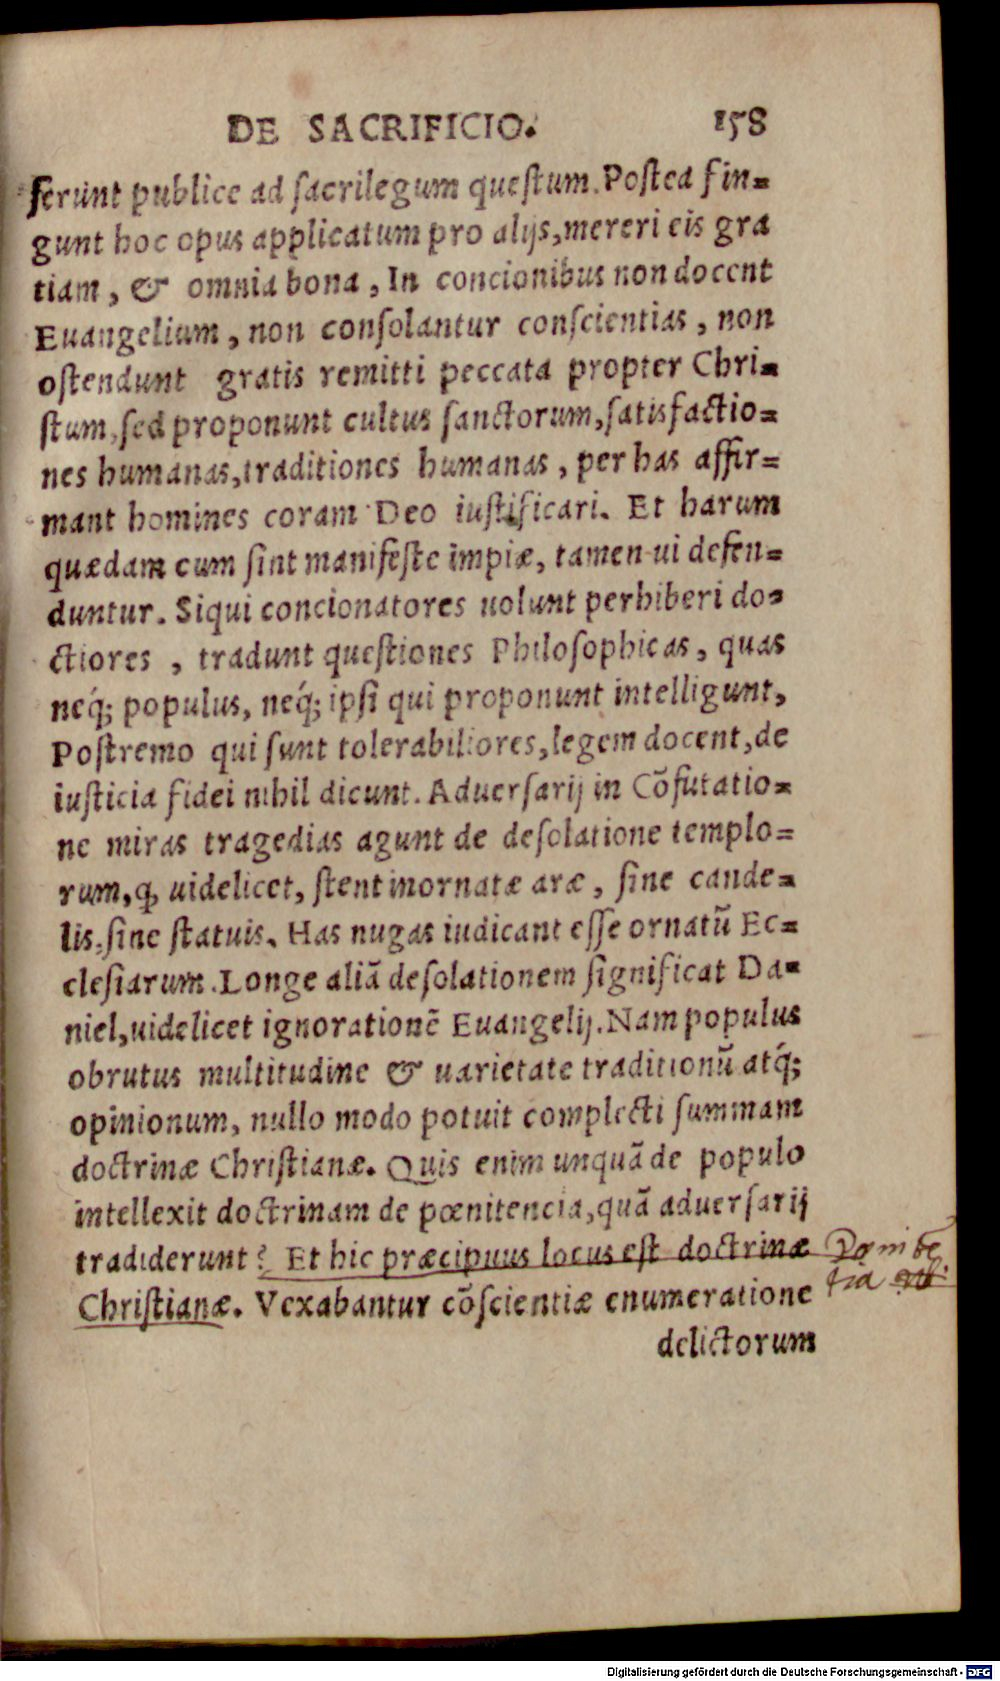 DE SACRIFICIO. 158
ferunt publice ad ſacrilegum queſtum. Poſtea fin=
gunt hoc opus applicatum pro alijs, mereri eis gra
tiam, & omnia bona, In concionibus non docent
Euangelium, non conſolantur conſcientias, non
oſtendunt gratis remitti peccata propter Chri=
ſtum, ſed proponunt cultus ſanctorum, ſatisfactio=
nes humanas, traditiones humanas, per has affir=
mant homines coram Deo iuſtificari. Et harum
quædam cum ſint manifeſte impiæ, tamen ui defen=
duntur. Siqui concionatores uolunt perhiberi do=
ctiores, tradunt queſtiones Philoſophicas, quas
neq́; populus, neq́; ipſi qui proponunt intelligunt,
Poſtremo qui ſunt tolerabiliores, legem docent, de
iuſticia fidei nihil dicunt. Aduerſarij in Cõfutatio=
ne miras tragedias agunt de deſolatione templo=
rum, ꝙ uidelicet, ſtent inornatæ aræ, ſine cande=
lis, ſine ſtatuis. Has nugas iudicant eſſe ornatũ Ec=
cleſiarum. Longe aliã deſolationem ſignificat Da=
niel, uidelicet ignorationẽ Euangelij. Nam populus
obrutus multitudine & uarietate traditionũ atq́;
opinionum, nullo modo potuit complecti ſummam
doctrinæ Chriſtianæ. Quis enim unquã de populo
intellexit doctrinam de pœnitencia, quã aduerſarij
tradiderunt? Et hic præcipuus locus eſt doctrinæ
Chriſtianæ. Vexabantur cõſcientiæ enumeratione
delictorum
Pœnitẽ
tia
Digitalisierung gefördert durch die Deutsche Forschungsgemeinschaft - DFG